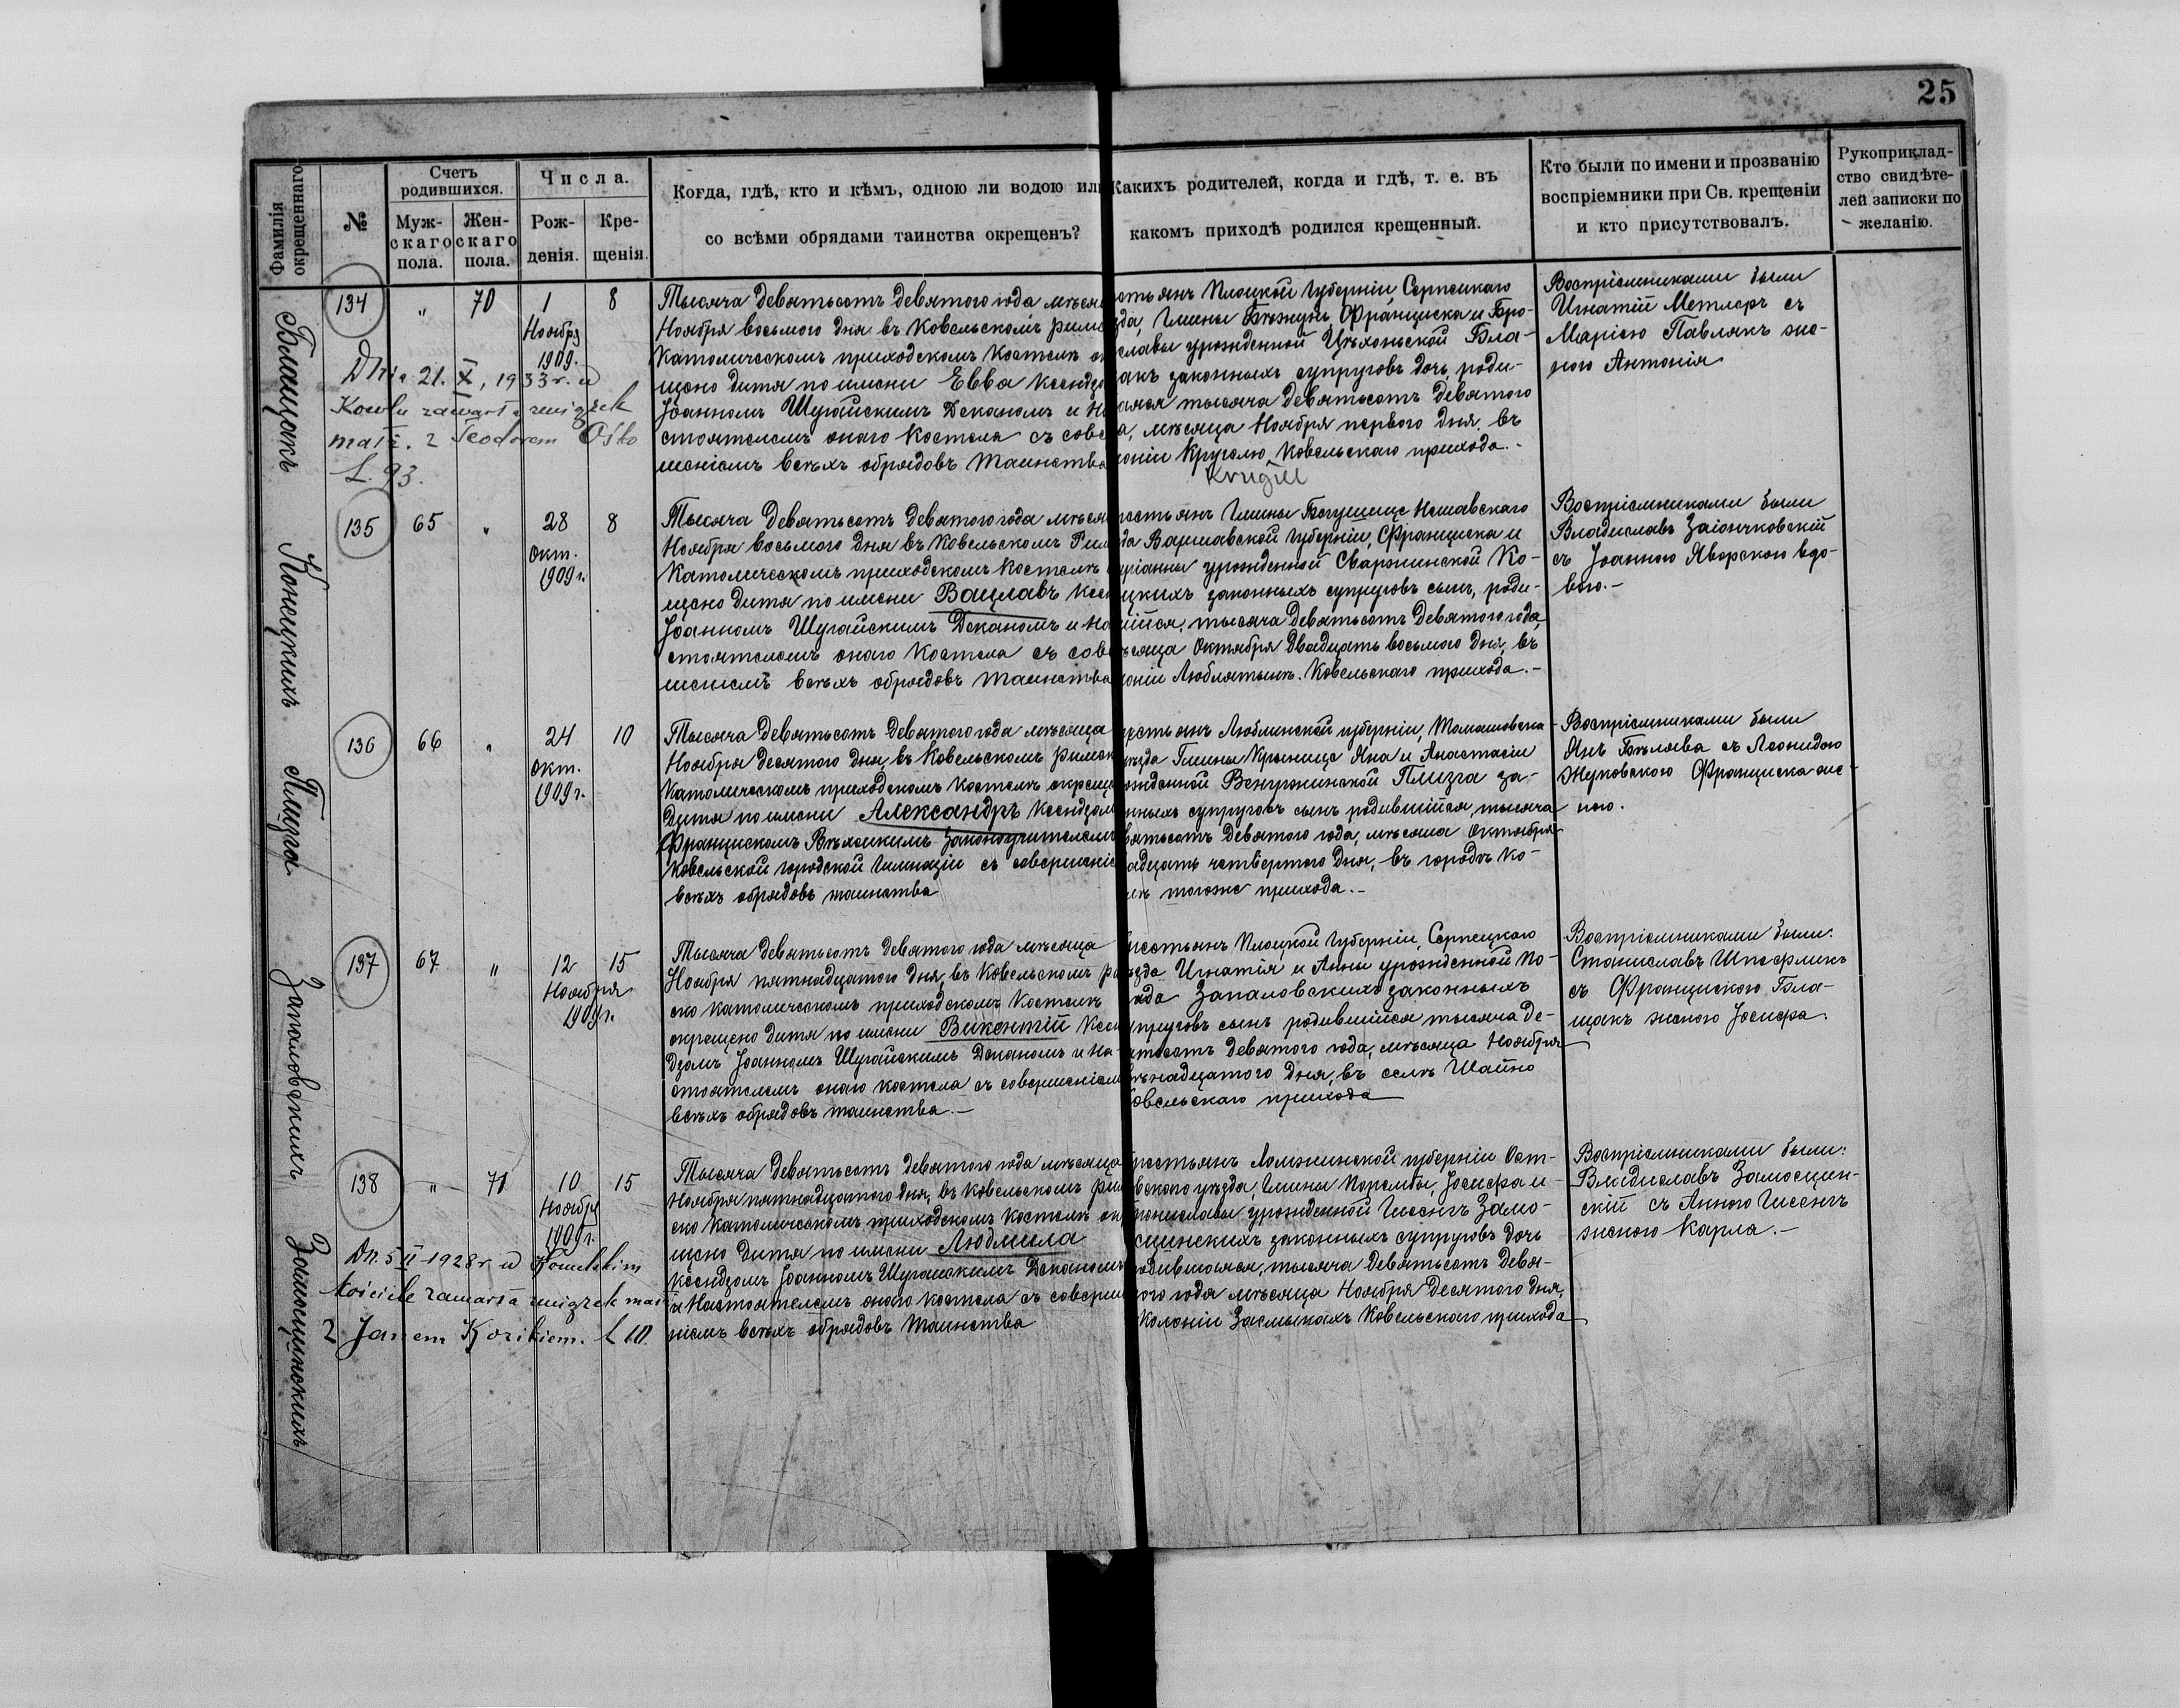 25
Фамилія окрещеннаго.
№
Счетъ родившихся.
Муж-скаго пола.
Жен-скаго пола.
Числа.
Рож-денія.
Кре-щенія.
Когда, гдѣ, кто и кѣмъ, одною ли водою или
со всѣми обрядами таинства окрещенъ?
Какихъ родителей, когда и гдѣ, т. е. въ
какомъ приходѣ родился крещенный.
Кто были по имени и прозванію
воспріемники при Св. крещеніи
и кто присутствовалъ.
Рукоприклад-
ство свидѣте-
лей записки по
желанію.
Блащакъ
134 " 70 1 Ноября 1909. 8
Тысяча девятьсотъ девятого года мѣсяц
Ноября восьмого дня въ Ковельскомъ римс
католическомъ приходскомъ костелѣ ок
щено дитя по имени Евва ксендзо
Іоанномъ Шугайскимъ Деканомъ и На
стоятелемъ онаго костела съ совер
шеніемъ всѣхъ обрядовъ таинства
Dnia 21. X, 1933 r. w
Kowlu zawarła związek
małż. z Teodorem Ośko
L. 93.
стьянъ Плоцкой губерніи, Серпецкаго
зда, гмины Бѣжунь Франциска и Бро-
славы урожденной Цѣхоньской Бла-
акъ законныхъ супруговъ дочь, роди-
аяся тысяча девятьсотъ девятого
а, мѣсяца Ноября первого дня, въ
оніи Круголю, Ковельскаго прихода.-
Krugiel
Воспріемниками были
Игнатій Метлеръ съ
Маріею Павлякъ же-
ною Антонія
Конецкихъ
135 65 " 28 Окт. 1909 г. 8
Тысяча девятьсотъ девятого года мѣсяц
Ноября восьмого дня въ Ковельскомъ Рим
Католическомъ приходскомъ костелѣ
щено дитя по имени Вацлавъ ксен
Іоанномъ Шугайскимъ Деканомъ и На
стоятелемъ онаго костела съ сове
шеніемъ всѣхъ обрядовъ таинства
рестьянъ гмины Нешавскаго
да Варшавской губерніи, Франциска и
ріанны урожденной Сваржинской Ко-
цкихъ законныхъ супруговъ сынъ, роди-
ійся, тысяча девятьсотъ девятого года,
ѣсяца Октября двадцать восьмого дня, въ
оніи Люблятынѣ, Ковельскаго прихода.-
Воспріемниками были
Владиславъ Заіончковскій
съ Іоанною Яворскою вдо-
вою.-
Плизга
136 66 " 24 Окт. 1909 г. 10
Тысяча девятьсотъ девятого года мѣсяца
Ноября десятого дня, въ Ковельскомъ римск
католическомъ приходскомъ костелѣ окрещ
дитя по имени Александръ ксендзом
Францискомъ законоучителем
Ковельской городской гимназіи съ совершеніе
всѣхъ обрядовъ таинства
рестьянъ Люблинской губерніи, Томашовска-
ѣзда гмины Крыницe Яна и Анастасіи
ожденной Венгржинской Плизга за-
нныхъ супруговъ сынъ родившійся, тысяча
вятьсотъ девятого года, мѣсяца Октября
адцать четвертого дня, въ городѣ Ко-
лѣ тогоже прихода.-
Воспріемниками были
Янъ Бѣлява съ Леонидою
Жуковскою Франциска же-
ною.
Запаловскихъ
137 67 " 12 Ноября 1909 г. 15
Тысяча девятьсотъ девятого года мѣсяца
Ноября пятнадцатого дня, въ Ковельскомъ ри
ско католическомъ приходскомъ костелѣ
окрещено дитя по имени Викентій ксен
дзомъ Іоанномъ Шугайскимъ Деканомъ и На-
стоятелемъ онаго костела съ совершеніем
всѣхъ обрядовъ таинства.-
рестьянъ Плоцкой губерніи, Серпецкаго
ѣзда Игнатія и Анны урожденной По-
ада Запаловскихъ законныхъ
упруговъ сынъ родившійся тысяча де-
ятьсотъ девятого года, мѣсяца Ноября
ѣнадцатого дня, въ селѣ Шайно
овельскаго прихода
Воспріемниками были:
Станиславъ
съ Франциского Бла-
щакъ женою Іосифа.
Замосцинскихъ
138 " 71 10 Ноября 1909 г. 15
Тысяча девятьсотъ девятого года мѣсяца
Ноября пятнадцатого дня, въ Ковельскомъ рим
ско католическомъ приходскомъ костелѣ ок
щено дитя по имени Людмила
ксендзомъ Іоанномъ Шугайскимъ Деканом
и Настоятелемъ онаго костела съ соверш
ніемъ всѣхъ обрядовъ таинства
Dn. 5 II 1928 r. w Kowelskim
kościele zawarła związek mał
z Janem Kozikiem. L 10.
рестьянъ Ломжинской губерніи Ост-
вского уѣзда, гмины Іосифа и
рониславы урожденной Гисенгъ Замо-
сцинскихъ законныхъ супруговъ дочь
одившаяся, тысяча девятьсотъ девя-
ого года мѣсяца Ноября десятого дня,
Колоніи Засмыкахъ Ковельскаго прихода
Воспріемниками были:
Владиславъ Замосцин-
скій съ Анною Гисенгъ
женою Карла.-